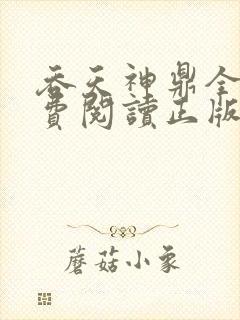 吞天神鼎全
費閱讀正版
蘑菇小象